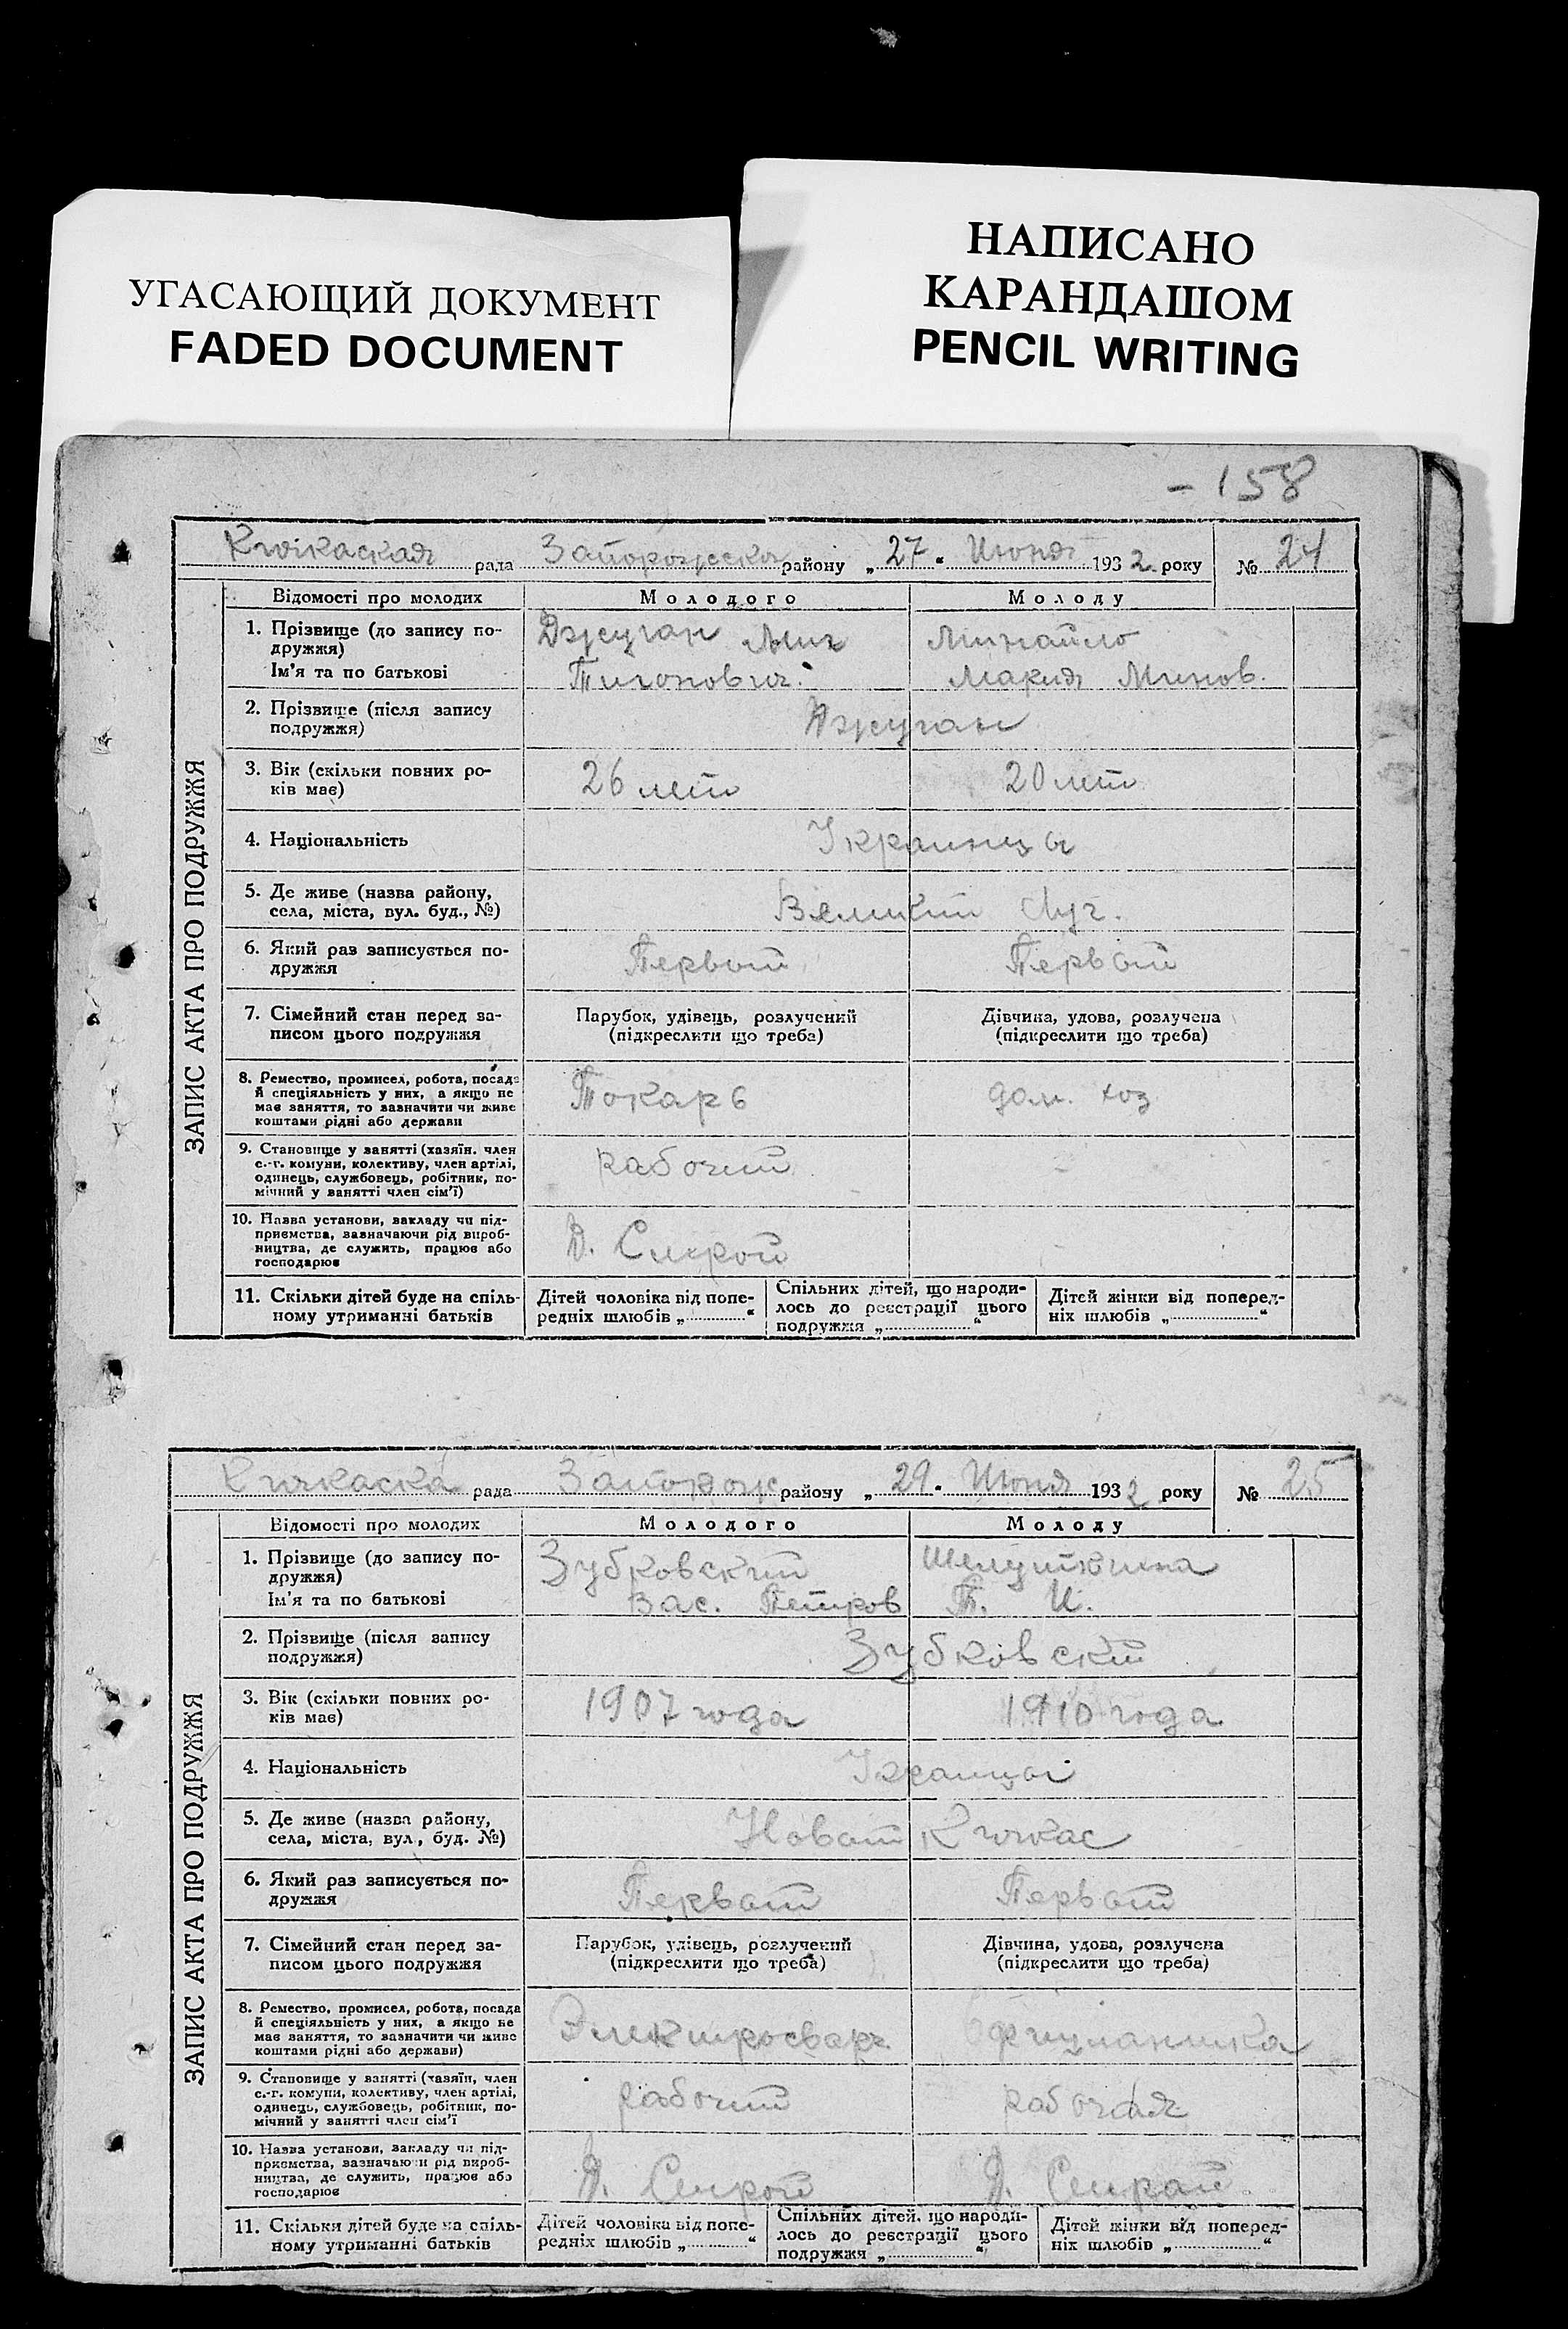 УГАСАЮЩИЙ ДОКУМЕНТ
FADED DOCUMENT
НАПИСАНО
КАРАНДАШОМ
PENCIL WRITING
- 158
ЗАПИС АКТА ПРО ПОДРУЖЖЯ
рада Запорожска району „27“ Июня 1932 року № 24
Відомості про молодих Молодого Молоду
1. Прізвище (до запису подружжя) Джуган Михайло
Ім’я та по батькові Тихонович. Мария
2. Прізвище (після запису
подружжя) Джуган
3. Вік (скільки повних ро-
ків має) 26 лет 20 лет
4. Національність Украинцы
5. Де живе (назва району,
села, міста, вул. буд., №) Великий Луг.
6. Який раз записується по-
дружжя Первый Первый
7. Сімейний стан перед за- Парубок, удівець, розлучений Дівчина, удова, розлучена
писом цього подружжя (підкреслити що треба) (підкреслити що треба)
8. Ремество, промисел, робота, посада
й спеціяльність у них, а якщо не
має заняття, то зазначити чи живе
коштами рідні або держави Токарь дом. хоз
9. Становище у занятті (хазяїн. член
с.-г. комуни, колективу, член артілі,
одинець, службовець, робітник, по-
мічний у занятті член сім’ї) рабочий
10. Назва установи, закладу чи під-
приємства, зазначаючи рід вироб-
ництва, де служить, працює або
господарює Д. Строй
11. Скільки дітей буде на спіль-
ному утриманні батьків
Дітей чоловіка від попе-
редніх шлюбів „ “
Спільних дітей, що народи-
лось до реєстрації цього
подружжя „ “
Дітей жінки від поперед-
ніх шлюбів „ “
ЗАПИС АКТА ПРО ПОДРУЖЖЯ
Кичкаска рада Запорож району „29“ Июня 1932 року № 25
Відомості про молодих Молодого Молоду
1. Прізвище (до запису по-
дружжя) Зубковский
Ім’я та по батькові Вас. Петров Т. И.
2. Прізвище (після запису
подружжя) Зубковский
3. Вік (скільки повних ро-
ків має) 1907 года 1910 года
4. Національність Украинцы
5. Де живе (назва району,
села, міста, вул., буд. №) Новый Кичкас
6. Який раз записується по-
дружжя Первый Первый
7. Сімейний стан перед за- Парубок, удівець, розлучений Дівчина, удова, розлучена
писом цього подружжя (підкреслити що треба) (підкреслити що треба)
8. Ремество, промисел, робота, посада
й спеціяльність у них, а якщо не
має заняття, то зазначити чи живе
коштами рідні або держави) Электросварк
9. Становище у занятті (хазяїн, член
с.-г. комуни, колективу, член артілі,
одинець, службовець, робітник, по-
мічний у занятті член сім’ї рабочий рабочая
10. Назва установи, закладу чи під-
приємства, зазначаючи рід вироб-
ництва, де служить, працює або
господарює Д. Строй Д. Строй
11. Скільки дітей буде на спіль-
ному утриманні батьків
Дітей чоловіка від попе-
редніх шлюбів „ “
Спільних дітей, що народи-
лось до реєстрації цього
подружжя „ “
Дітей жінки від поперед-
ніх шлюбів „ “